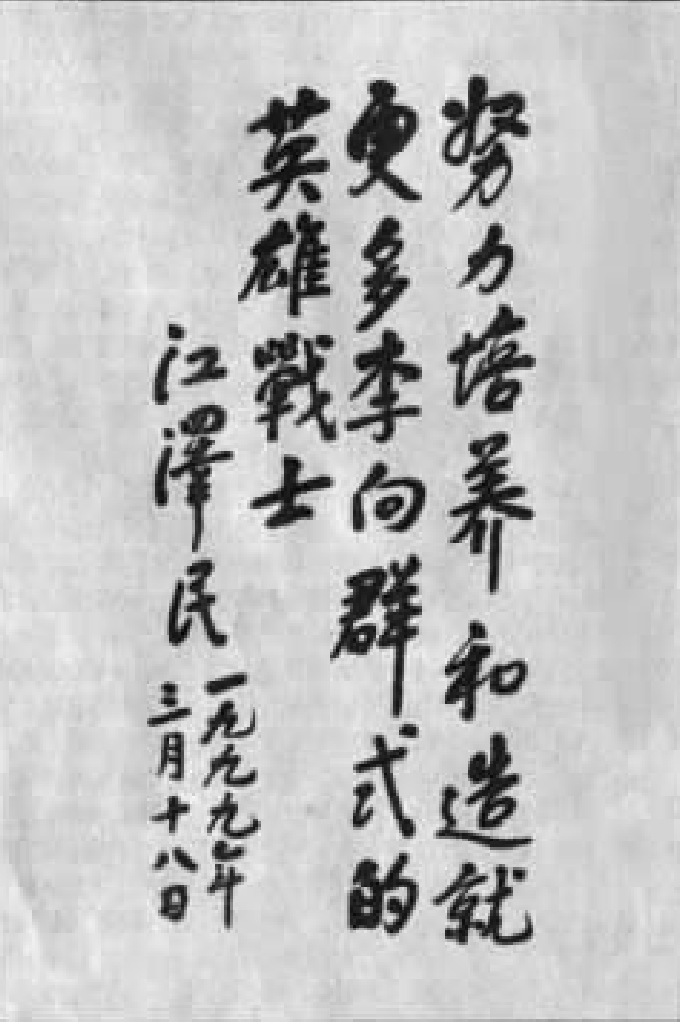 努力培养和造就
更多李向群式的
英雄戰士
江澤民
一九九九年
三月十八日